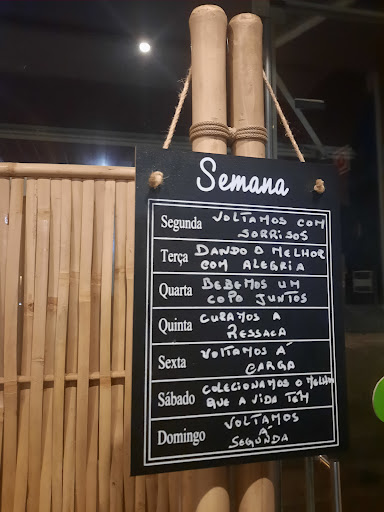 Semana
Segunda VOLTAMOS COM
SORRISOS
Terça DANDO O MELHOR
COM ALEGRIA
Quarta BEBEMOS UM
COPO JUNTOS
Quinta CURAMOS A
RESSACA
Sexta VOLTAMOS Á
CARGA
Sábado COLECIONAMOS O MELHOR
QUE A VIDA TEM
Domingo VOLTAMOS
Á
SEGUNDA